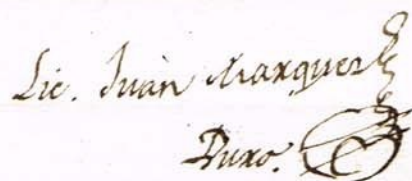 Lic. Juan Marquez
Duro.